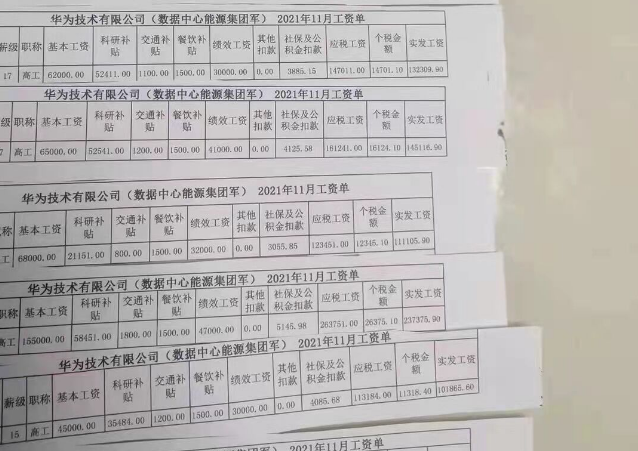 华为技术有限公司（数据中心能源集团军） 2021年11月工资单
薪级 职称 基本工资 科研补贴 交通补贴 餐饮补贴 绩效工资 其他扣款 社保及公积金扣款 应税工资 个税金额 实发工资
17 高工 62000.00 52411.00 1100.00 1500.00 30000.00 0.00 3885.15 147011.00 14701.10 132309.90
华为技术有限公司（数据中心能源集团军） 2021年11月工资单
级 职称 基本工资 科研补贴 交通补贴 餐饮补贴 绩效工资 其他扣款 社保及公积金扣款 应税工资 个税金额 实发工资
7 高工 65000.00 52541.00 1200.00 1500.00 41000.00 0.00 4125.58 161241.00 16124.10 145116.90
华为技术有限公司（数据中心能源集团军） 2021年11月工资单
称 基本工资 科研补贴 交通补贴 餐饮补贴 绩效工资 其他扣款 社保及公积金扣款 应税工资 个税金额 实发工资
工 68000.00 21151.00 800.00 1500.00 32000.00 0.00 3055.85 123451.00 12345.10 111105.90
华为技术有限公司（数据中心能源集团军） 2021年11月工资单
职称 基本工资 科研补贴 交通补贴 餐饮补贴 绩效工资 其他扣款 社保及公积金扣款 应税工资 个税金额 实发工资
高工 155000.00 58451.00 1800.00 1500.00 47000.00 0.00 5145.98 263751.00 26375.10 237375.90
华为技术有限公司（数据中心能源集团军） 2021年11月工资单
薪级 职称 基本工资 科研补贴 交通补贴 餐饮补贴 绩效工资 其他扣款 社保及公积金扣款 应税工资 个税金额 实发工资
15 高工 45000.00 35484.00 1200.00 1500.00 30000.00 0.00 4085.68 113184.00 11318.40 101865.60
集团军） 2021年11月工资单